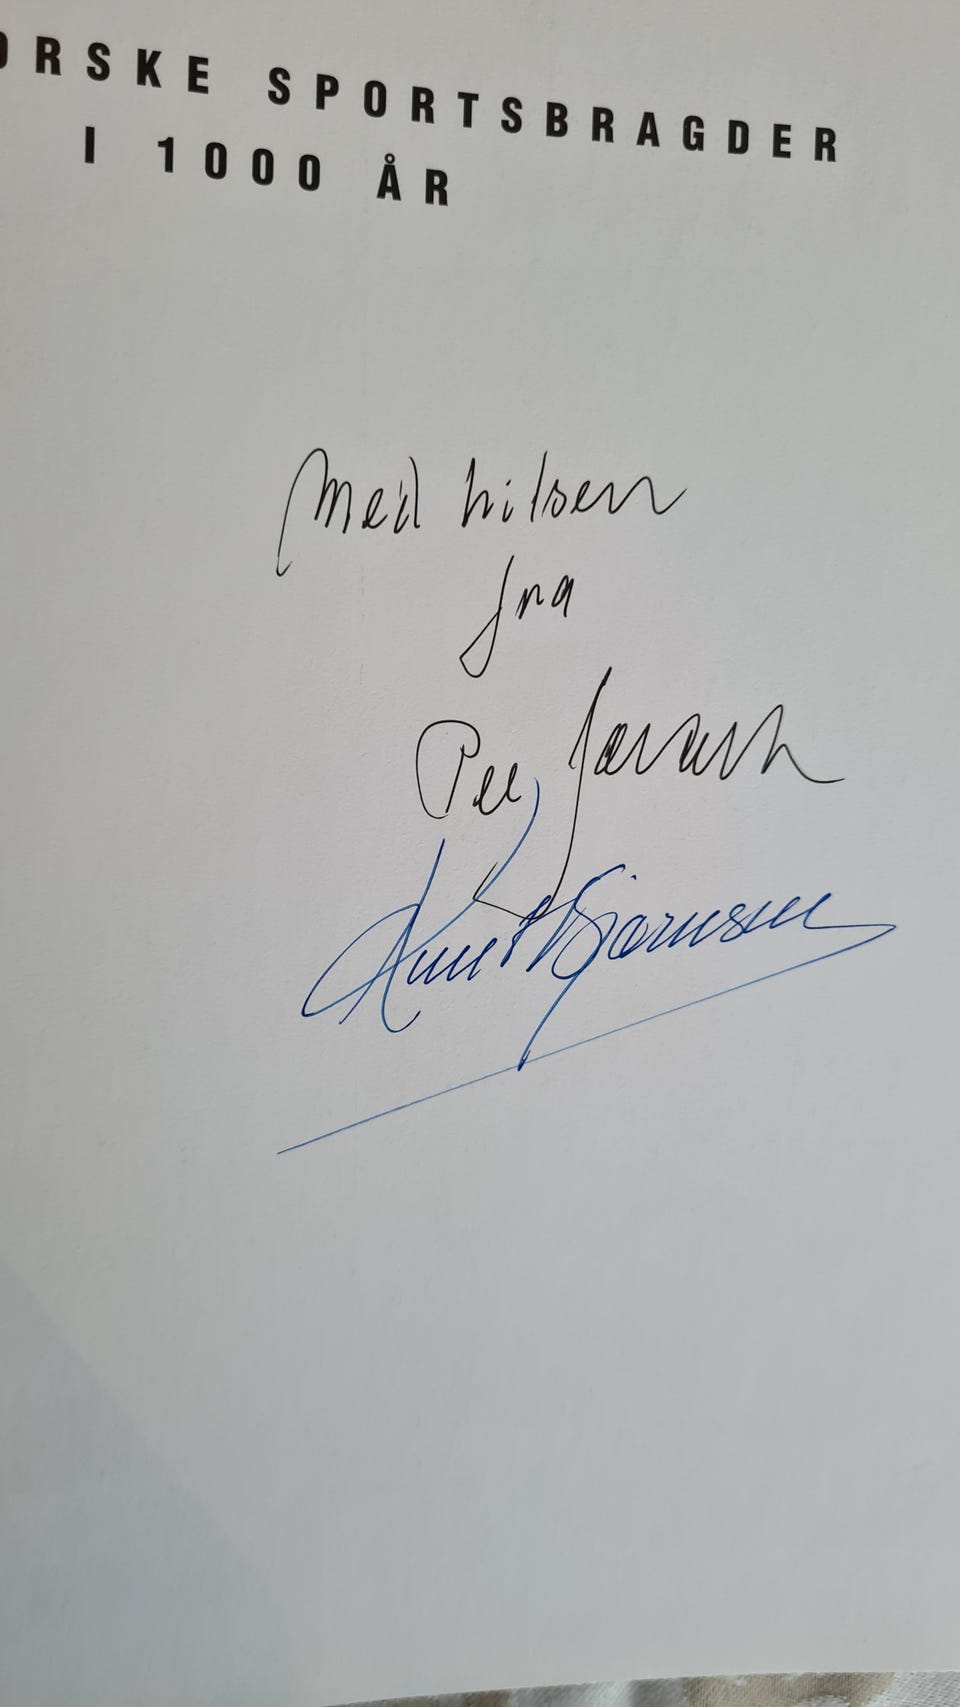 ORSKE SPORTSBRAGDER
I 1000 ÅR
Med hilsen
fra
Per Jorsett
Knut Bjørnsen